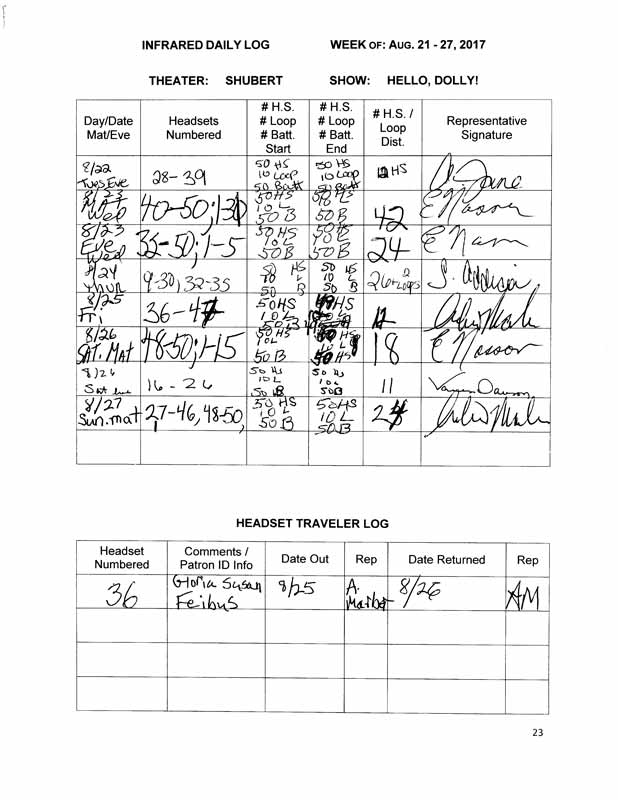 INFRARED DAILY LOG WEEK OF: AUG. 21 - 27, 2017
THEATER: SHUBERT SHOW: HELLO, DOLLY!
Day/Date Mat/Eve Headsets Numbered # H.S. # Loop # Batt. Start # H.S. # Loop # Batt. End # H.S. / Loop Dist. Representative Signature
8/22 Tues Eve 28-39 50 HS 10 Loop 50 Batt 50 HS 10 Loop 50 Batt 12 HS
8/23 MAT Wed 40-50; 1-31 50HS 10 L 50 B 50 B 42 E Nassor
8/23 Eve Wed 32-50; 1-5 50HS 10L 50B 50B 24 E Nassor
8/24 THUR 9-30, 32-35 50 HS 10 L 50 B 50 HS 10 50 B 26 2 Loops J. Addison
8/25 Fri 36-47 50HS 10L 49HS 12
8/26 SAT. MAT 48-50; 1-15 50 HS 10L 50 B 18 E Nassor
8/26 Sat Eve 16 - 26 50 HS 10L 50 B 50 HS 10L 50B 11
8/27 Sun. mat 27-46, 48-50, 50 HS 10 L 50 B 50HS 10 L 50B
HEADSET TRAVELER LOG
Headset Numbered Comments / Patron ID Info Date Out Rep Date Returned Rep
36 Gloria Susan Feibus 8/25 A. 8/26 AM
23